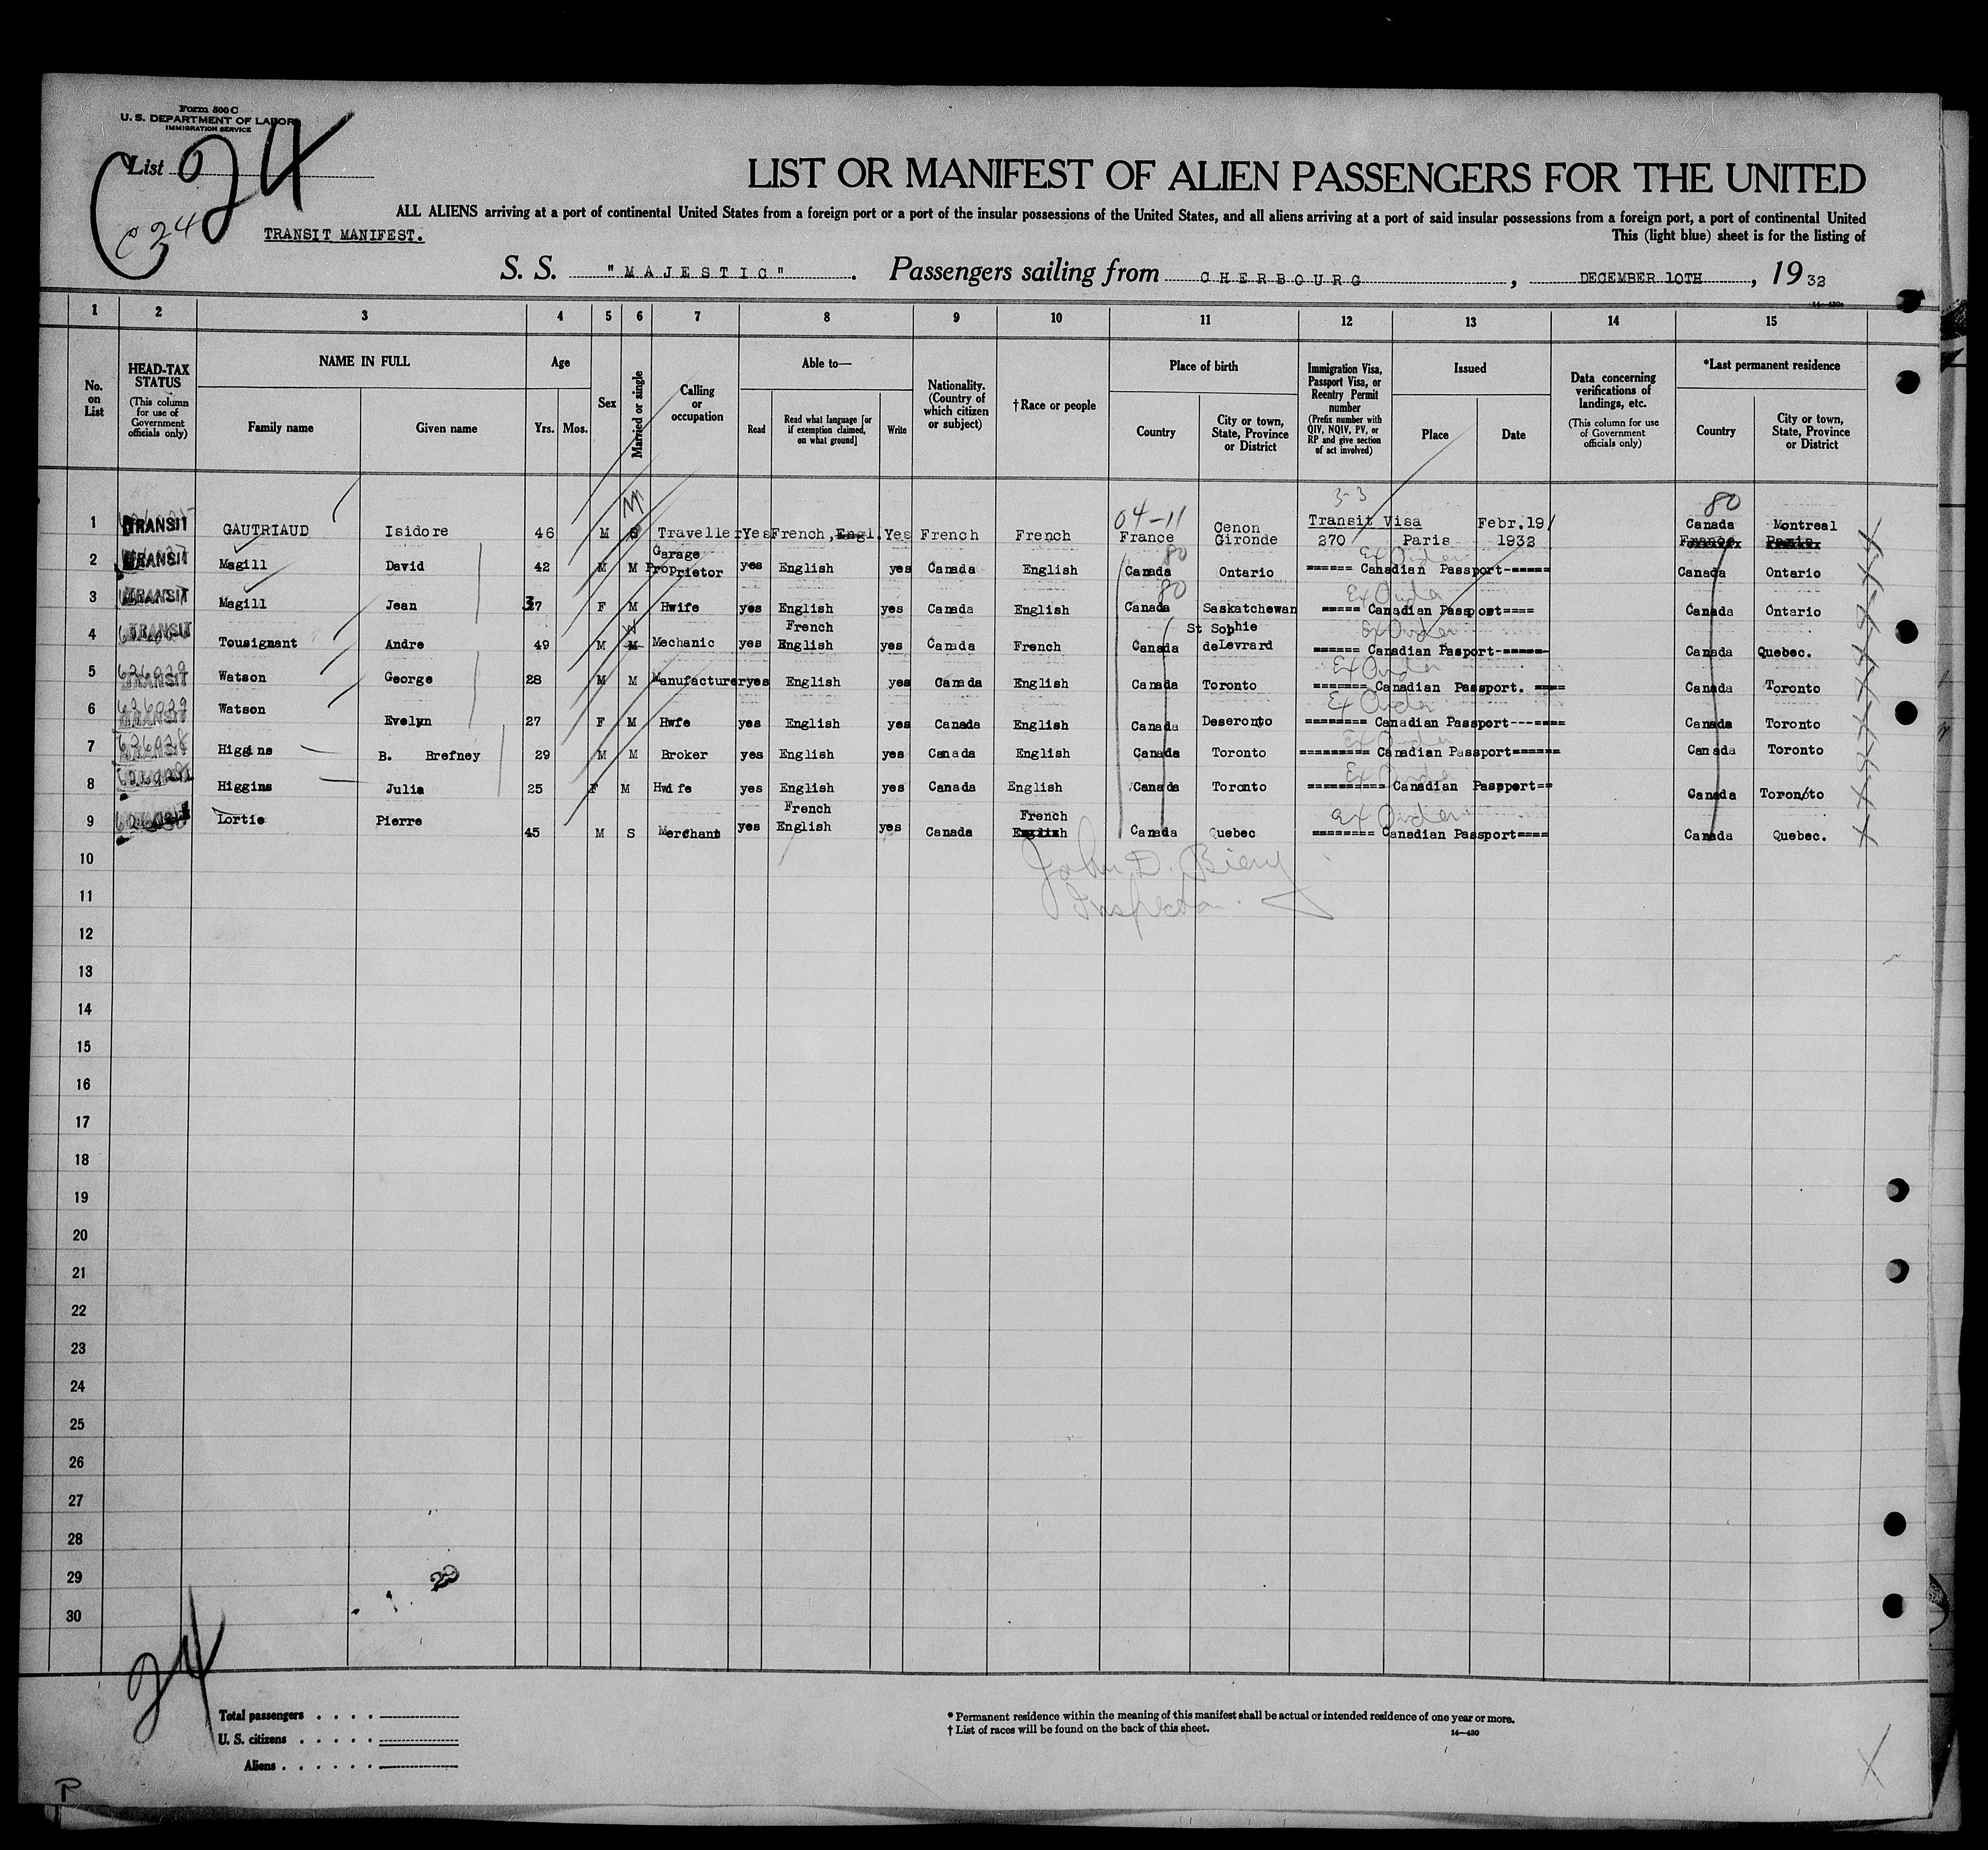 Form 500 C
U. S. DEPARTMENT OF LABOR
IMMIGRATION SERVICE
List 24
C 24
LIST OR MANIFEST OF ALIEN PASSENGERS FOR THE UNITED
ALL ALIENS arriving at a port of continental United States from a foreign port or a port of the insular possessions of the United States, and all aliens arriving at a port of said insular possessions from a foreign port, a port of continental United
TRANSIT MANIFEST.
This (light blue) sheet is for the listing of
S. S. "MAJESTIC". Passengers sailing from CHERBOURG, DECEMBER 10TH, 1932
1 2 3 4 5 6 7 8 9 10 11 12 13 14 15
No. on List
HEAD-TAX STATUS (This column for use of Government officials only)
NAME IN FULL
Family name
Given name
Age
Yrs. Mos.
Sex
Married or single
Calling or occupation
Able to—
Read
Read what language [or if exemption claimed, on what ground]
Write
Nationality. (Country of which citizen or subject)
†Race or people
Place of birth
Country
City or town, State, Province or District
Immigration Visa, Passport Visa, or Reentry Permit number (Prefix number with QIV, NQIV, PV, or RP and give section of act involved)
Issued
Place
Date
Data concerning verifications of landings, etc. (This column for use of Government officials only)
*Last permanent residence
Country
City or town, State, Province or District
3-3 80
1 TRANSIT GAUTRIAUD Isidore 46 M S M Traveller Yes French, Engl. Yes French French 04-11 France Cenon Gironde Transit Visa 270 Paris Febr. 19/ 1932 Canada Montreal France Paris
2 TRANSIT Magill David 42 M M Garage Proprietor yes English yes Canada English 80 Canada Ontario ====== Canadian Passport------ Canada Ontario
3 TRANSIT Magill Jean 37 F M Hwife yes English yes Canada English 80 Canada Saskatchewan ===== Canadian Passport==== Canada Ontario
4 TRANSIT Tousignant Andre 49 M M Mechanic yes French English yes Canada French Canada St Sophie deLevrard ====== Canadian Pasport------- Canada Quebec.
5 TRANSIT Watson George 28 M M Manufacturer yes English yes Canada English Canada Toronto ======= Canadian Passport. ==== Canada Toronto
6 TRANSIT Watson Evelyn 27 F M Hwfe yes English yes Canada English Canada Deseronto ======== Canadian Passport---==== Canada Toronto
7 Higgins B. Brefney 29 M M Broker yes English yes Canada English Canada Toronto ========= Canadian Passport====== Canada Toronto
8 Higgins Julia 25 F M Hwife yes English yes Canada English Canada Toronto ========== Canadian Passport== Canada Toronto
9 Lortie Pierre 45 M S Merchant yes French English yes Canada French English Canada Quebec ======== Canadian Passport==== Canada Quebec.
10 John D. Biery
11 Inspector.
12
13
14
15
16
17
18
19
20
21
22
23
24
25
26
27
28
29
30
24
Total passengers . . . .
U. S. citizens . . . . .
Aliens . . . . . .
* Permanent residence within the meaning of this manifest shall be actual or intended residence of one year or more.
† List of races will be found on the back of this sheet.
14—430
P